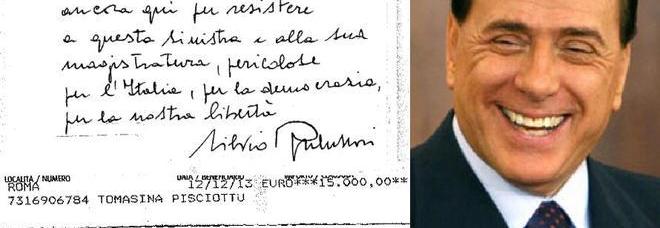 ancora qui per resistere
a questa sinistra e alla sua
magistratura, pericolose
per l'Italia, per la democrazia,
per la nostra libertà
Silvio Berlusconi
LOCALITA / NUMERO DATA / BENEFICIARIO
ROMA 12/12/13 EURO***15.000,00**
7316906784 TOMASINA PISCIOTTU